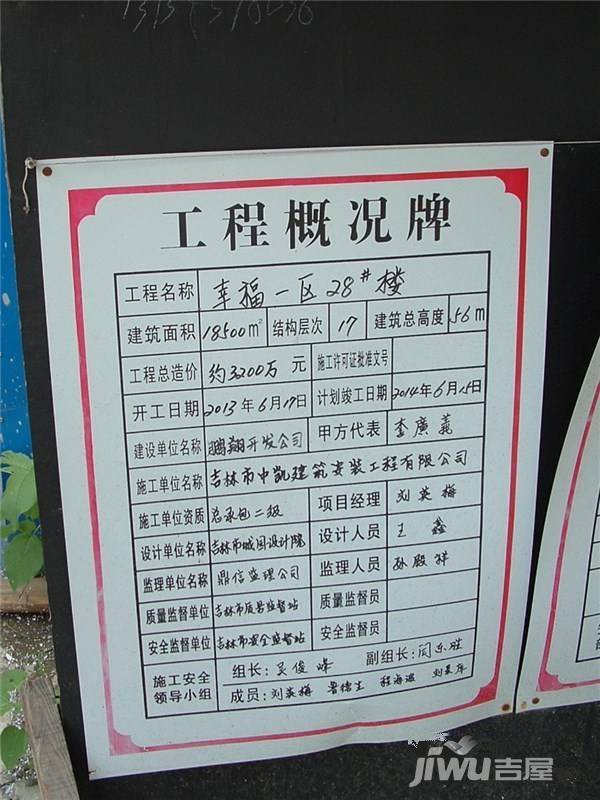 工程概况牌
工程名称 幸福一区28#楼
建筑面积 18500m² 结构层次 17 建筑总高度 56m
工程总造价 约3200万元 施工许可证批准文号
开工日期 2013年6月17日 计划竣工日期 2014年6月15日
建设单位名称 鹏翔开发公司 甲方代表 李廣義
施工单位名称 吉林市中凯建筑安装工程有限公司
施工单位资质 总承包二级 项目经理 刘英梅
设计单位名称 吉林市城园设计院 设计人员 王鑫
监理单位名称 鼎信监理公司 监理人员 孙殿祥
质量监督单位 吉林市质量监督站 质量监督员
安全监督单位 吉林市安全监督站 安全监督员
施工安全领导小组 组长:吴俊峰 副组长:闫东胜
成员:刘英梅 程海
JIWU吉屋